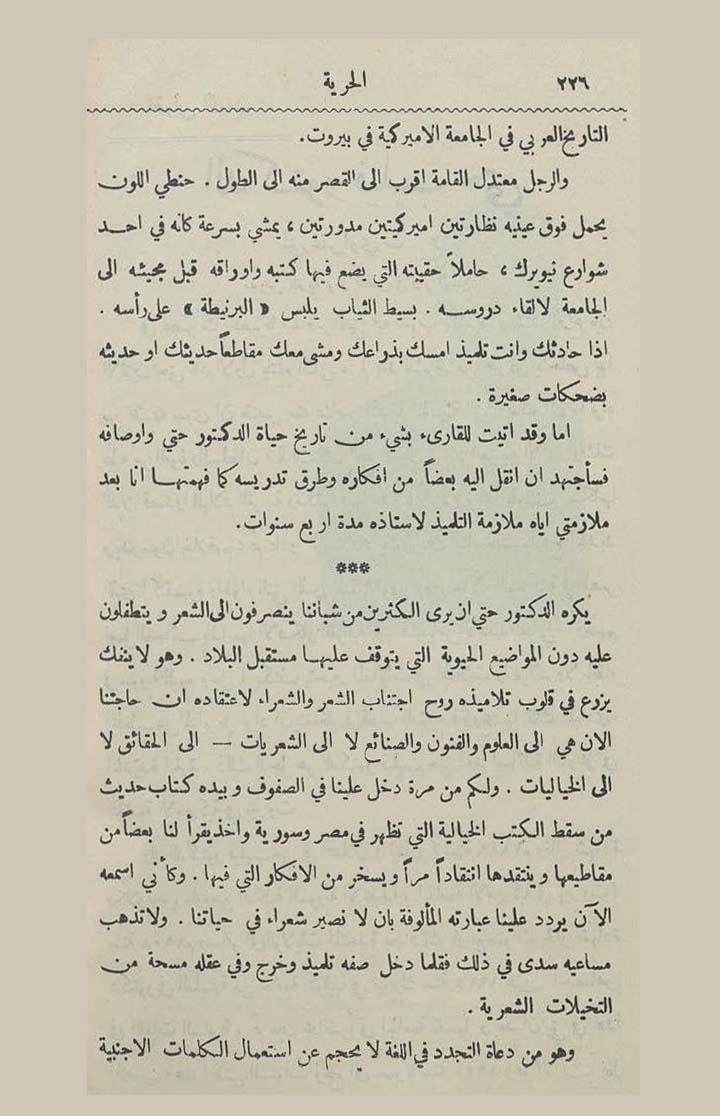 ٢٢٦ الحرية
التاريخ العربي في الجامعة الاميركية في بيروت.
والرجل معتدل القامة اقرب الى القصر منه الى الطول . حنطي اللون
يحمل فوق عينيه نظارتين اميركيتين مدورتين ، يمشي بسرعة كانه في احد
شوارع نيويرك ، حاملاً حقيبته التي يضع فيها كتبه واوراقه قبل مجيئه الى
الجامعة لالقاء دروسه . بسيط الثياب يلبس « البرنيطة » على رأسه .
اذا حادثك وانت تلميذ امسك بذراعك ومشى معك مقاطعاً حديثك او حديثه
بضحكات صغيرة .
اما وقد اتيت للقارىء بشيء من تاريخ حياة الدكتور حتي واوصافه
فسأجتهد ان انقل اليه بعضاً من افكاره وطرق تدريسه كما فهمتها انا بعد
ملازمتي اياه ملازمة التلميذ لاستاذه مدة اربع سنوات.
***
يكره الدكتور حتي ان يرى الكثرين من شباننا ينصرفون الى الشعر ويتطفلون
عليه دون المواضيع الحيوية التي يتوقف عليها مستقبل البلاد . وهو لا ينفك
يزرع في قلوب تلاميذه روح اجتناب الشعر والشعراء لاعتقاده ان حاجتنا
الان هي الى العلوم والفنون والصنائع لا الى الشعريات — الى الحقائق لا
الى الخياليات . ولكم من مرة دخل علينا في الصفوف وبيده كتاب حديث
من سقط الكتب الخيالية التي تظهر في مصر وسورية واخذ يقرأ لنا بعضاً من
مقاطيعها وينتقدها انتقاداً مراً ويسخر من الافكار التي فيها . وكأني اسمعه
الآن يردد علينا عبارته المألوفة بان لا نصير شعراء في حياتنا . ولا تذهب
مساعيه سدى في ذلك فقلما دخل صفه تلميذ وخرج وفي عقله مسحة من
التخيلات الشعرية .
وهو من دعاة التجدد في اللغة لا يحجم عن استعمال الكلمات الاجنبية